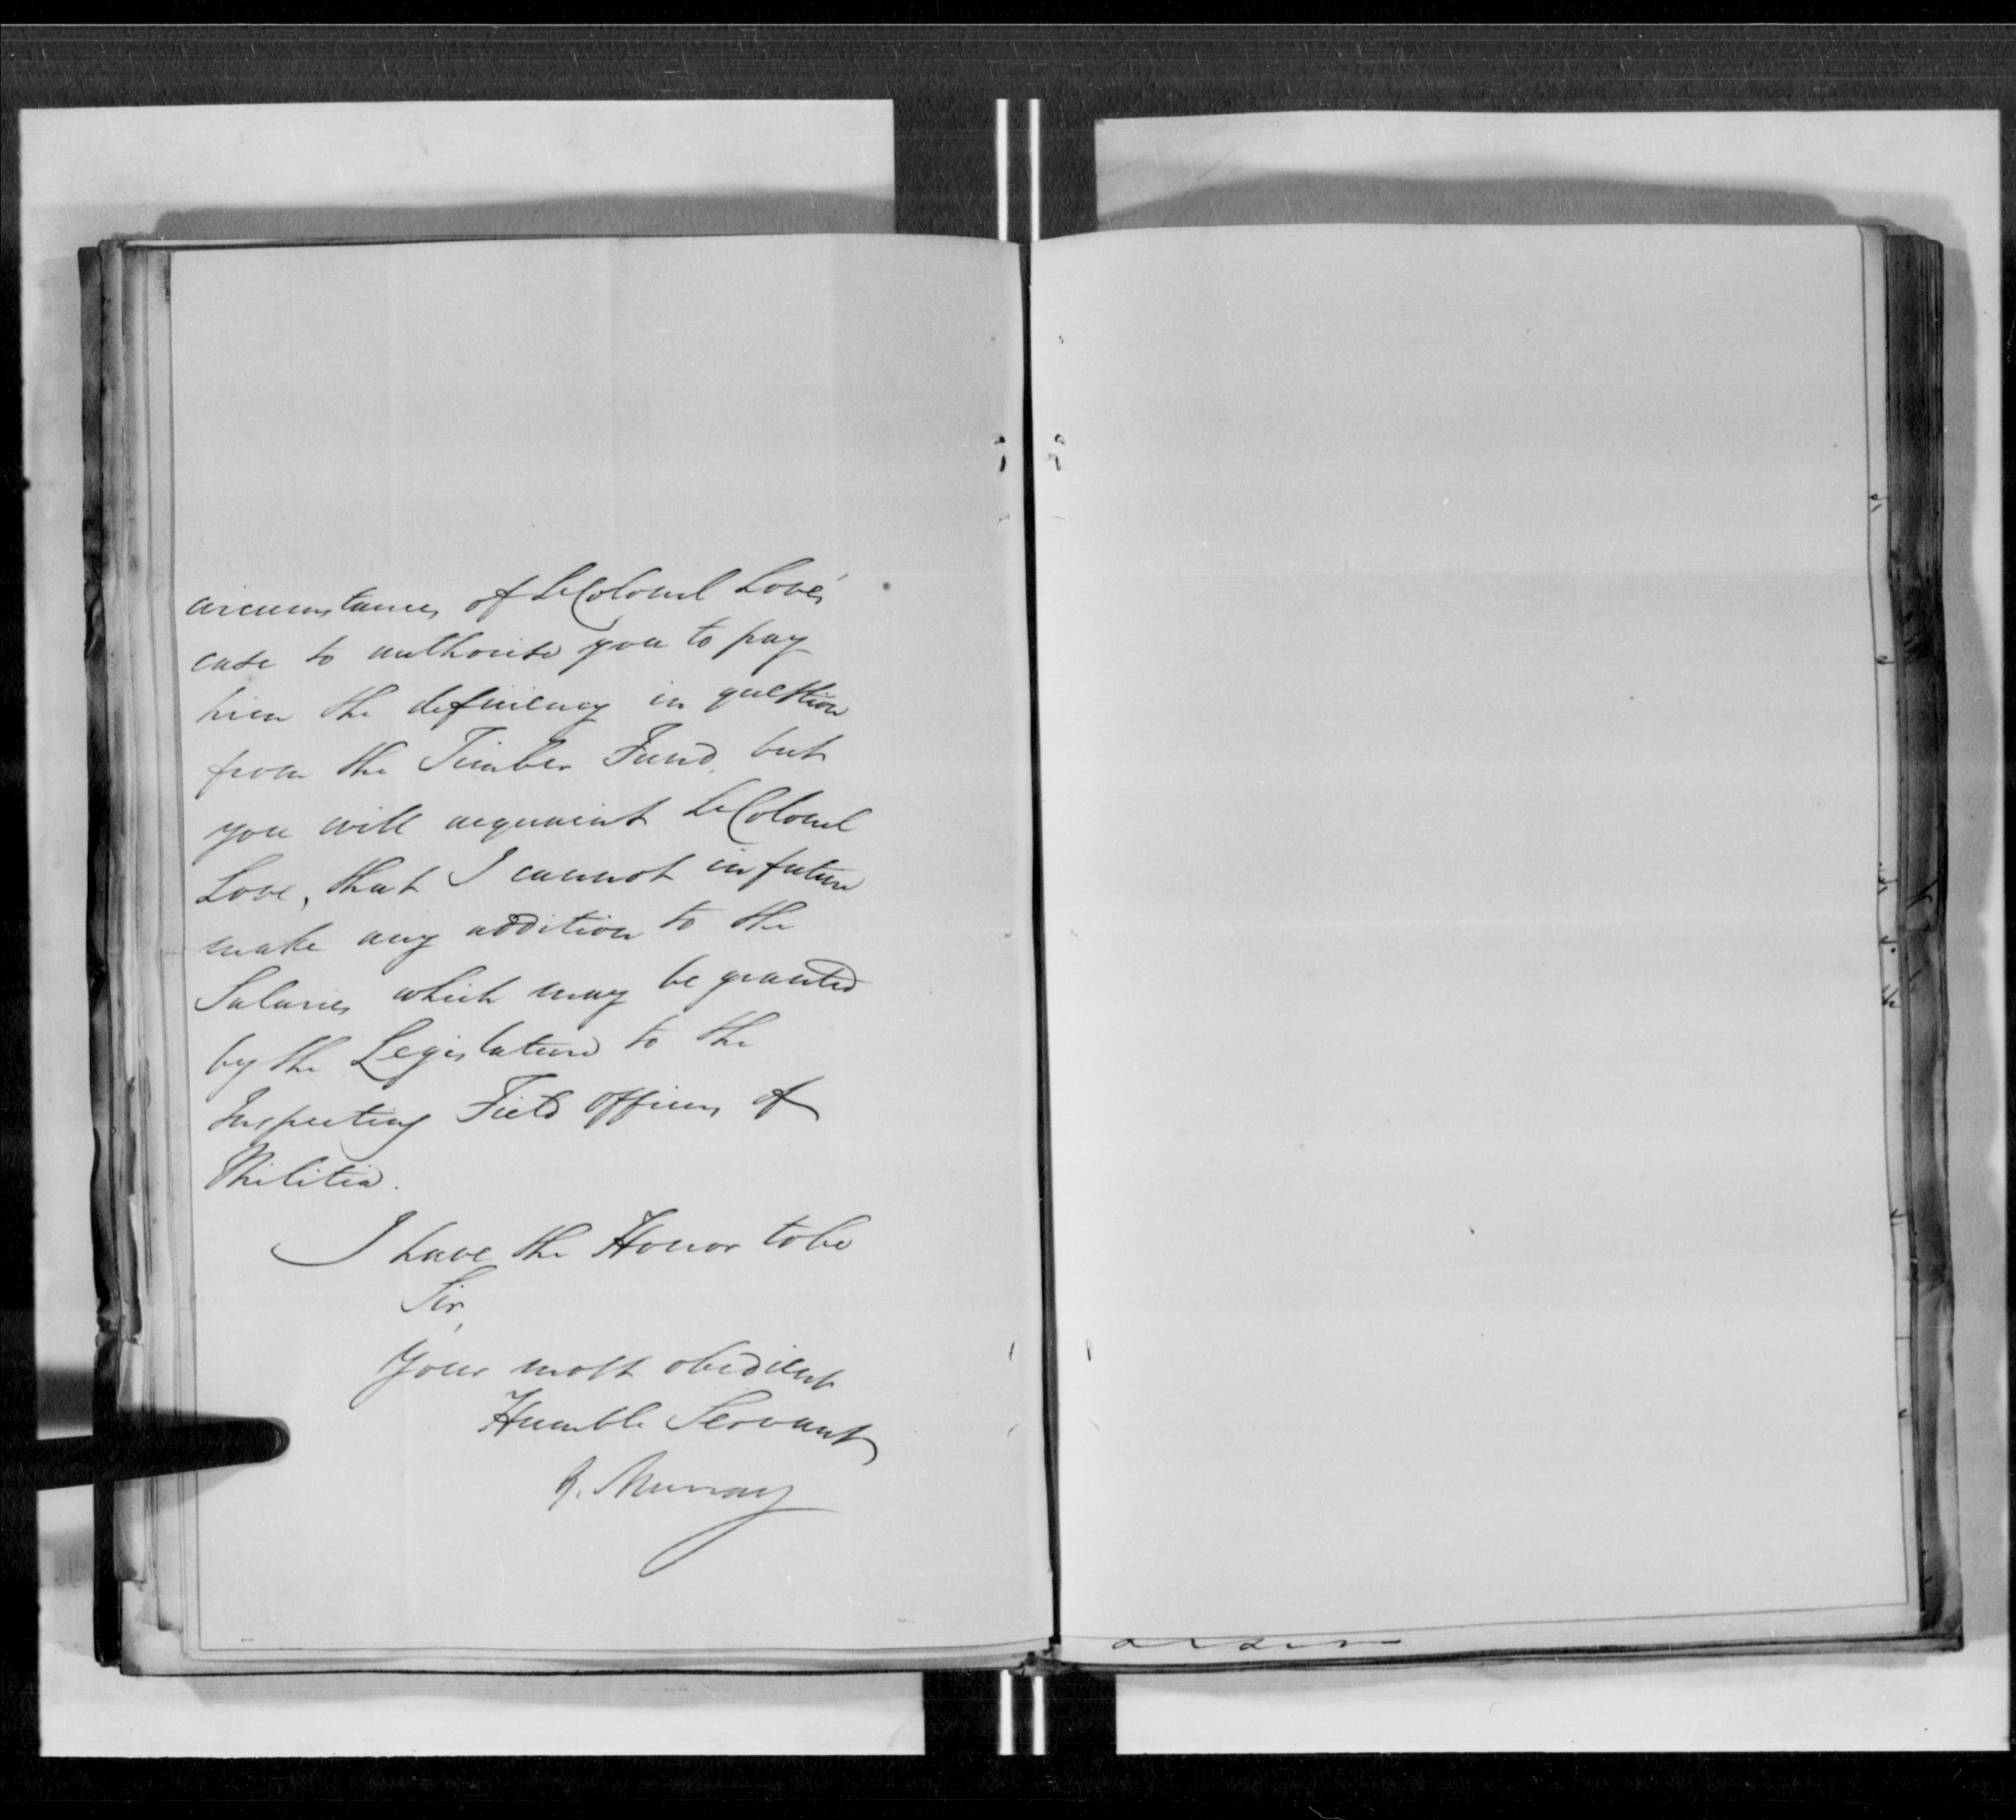 circumstances of Lt Colonel Love's
case to authorise you to pay
him the deficiency in question
from the Timber Fund, but
you will acquaint Lt Colonel
Love, that I cannot in future
make any addition to the
Salaries which may be granted
by the Legislature to the
Inspecting Field officers of
Militia.
I have the Honor to be
Sir,
Your most obedient
Humble Servant
G. Murray